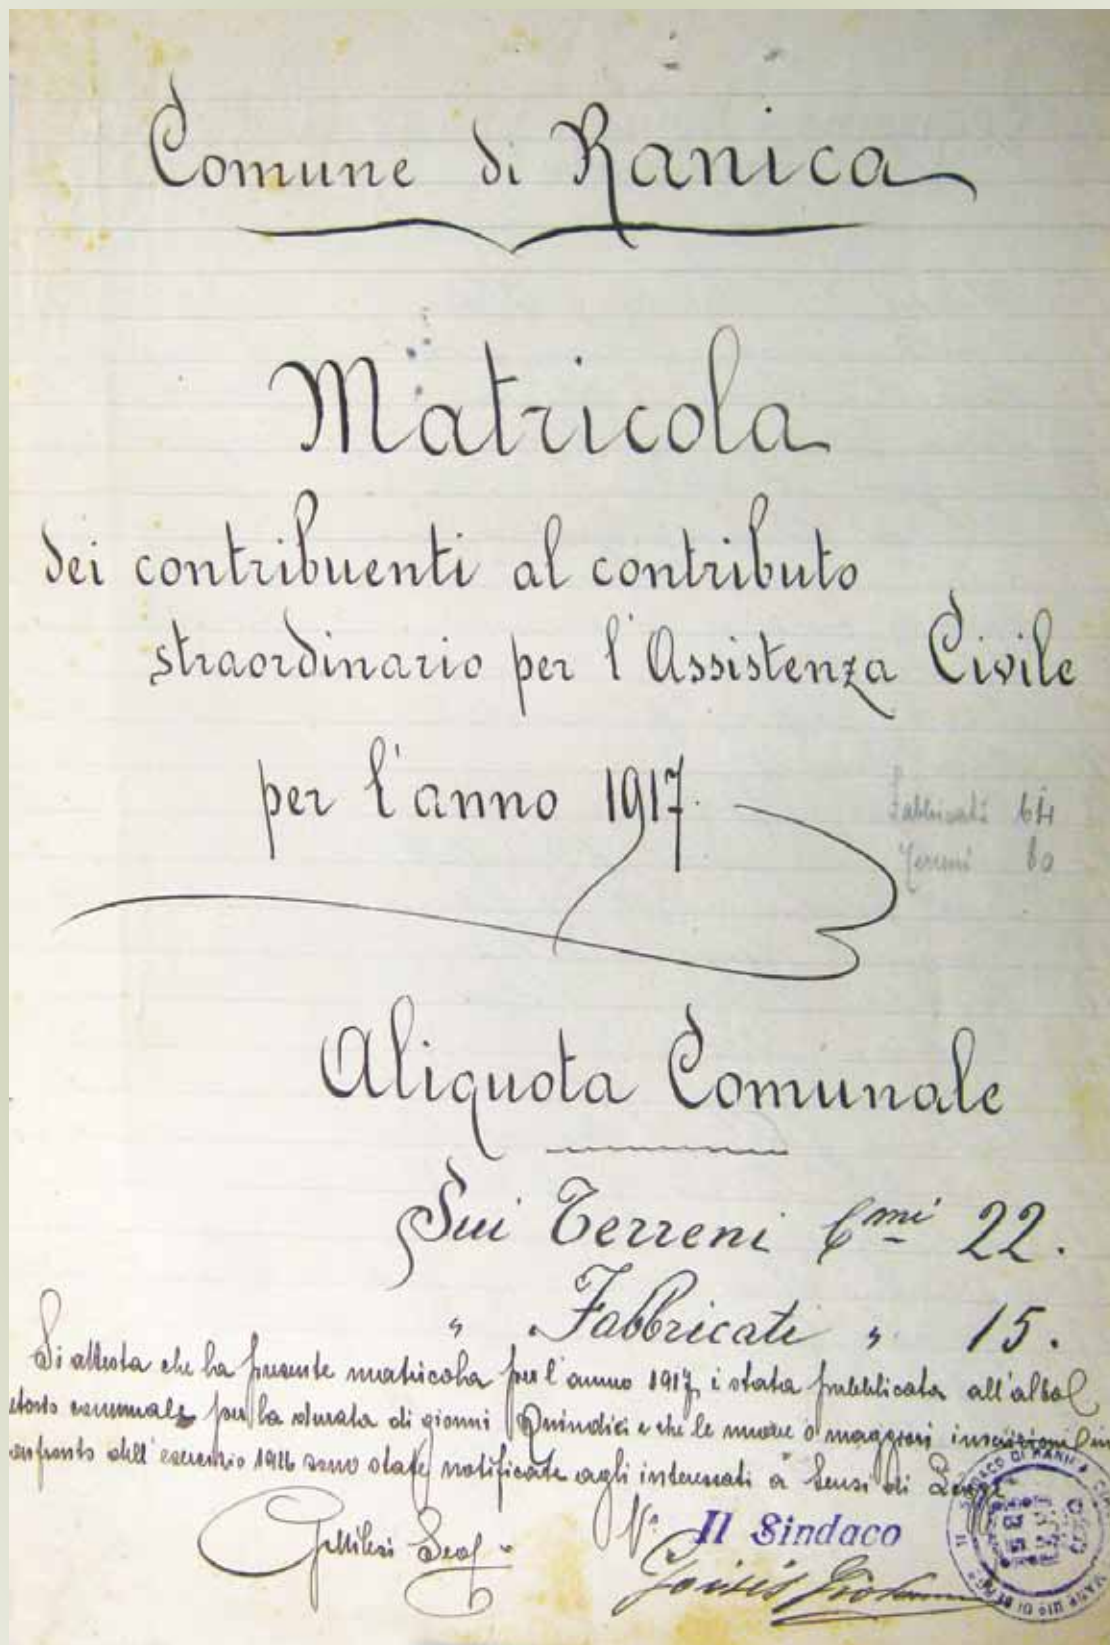 Comune di Ranica
Matricola
dei contribuenti al contributo
straordinario per l'Assistenza Civile
per l'anno 1917.
Fabbricati 64
Terreni 80
Aliquota Comunale
Sui Terreni Cmi 22.
" Fabbricati " 15.
Si attesta che la presente matricola per l'anno 1917, è stata pubblicata all'albo
comunale per la durata di giorni Quindici e che le nuove o maggiori inscrizioni in
confronto dell'esercizio 1916 sono state notificate agli interessati a sensi di Legge
Il Sindaco